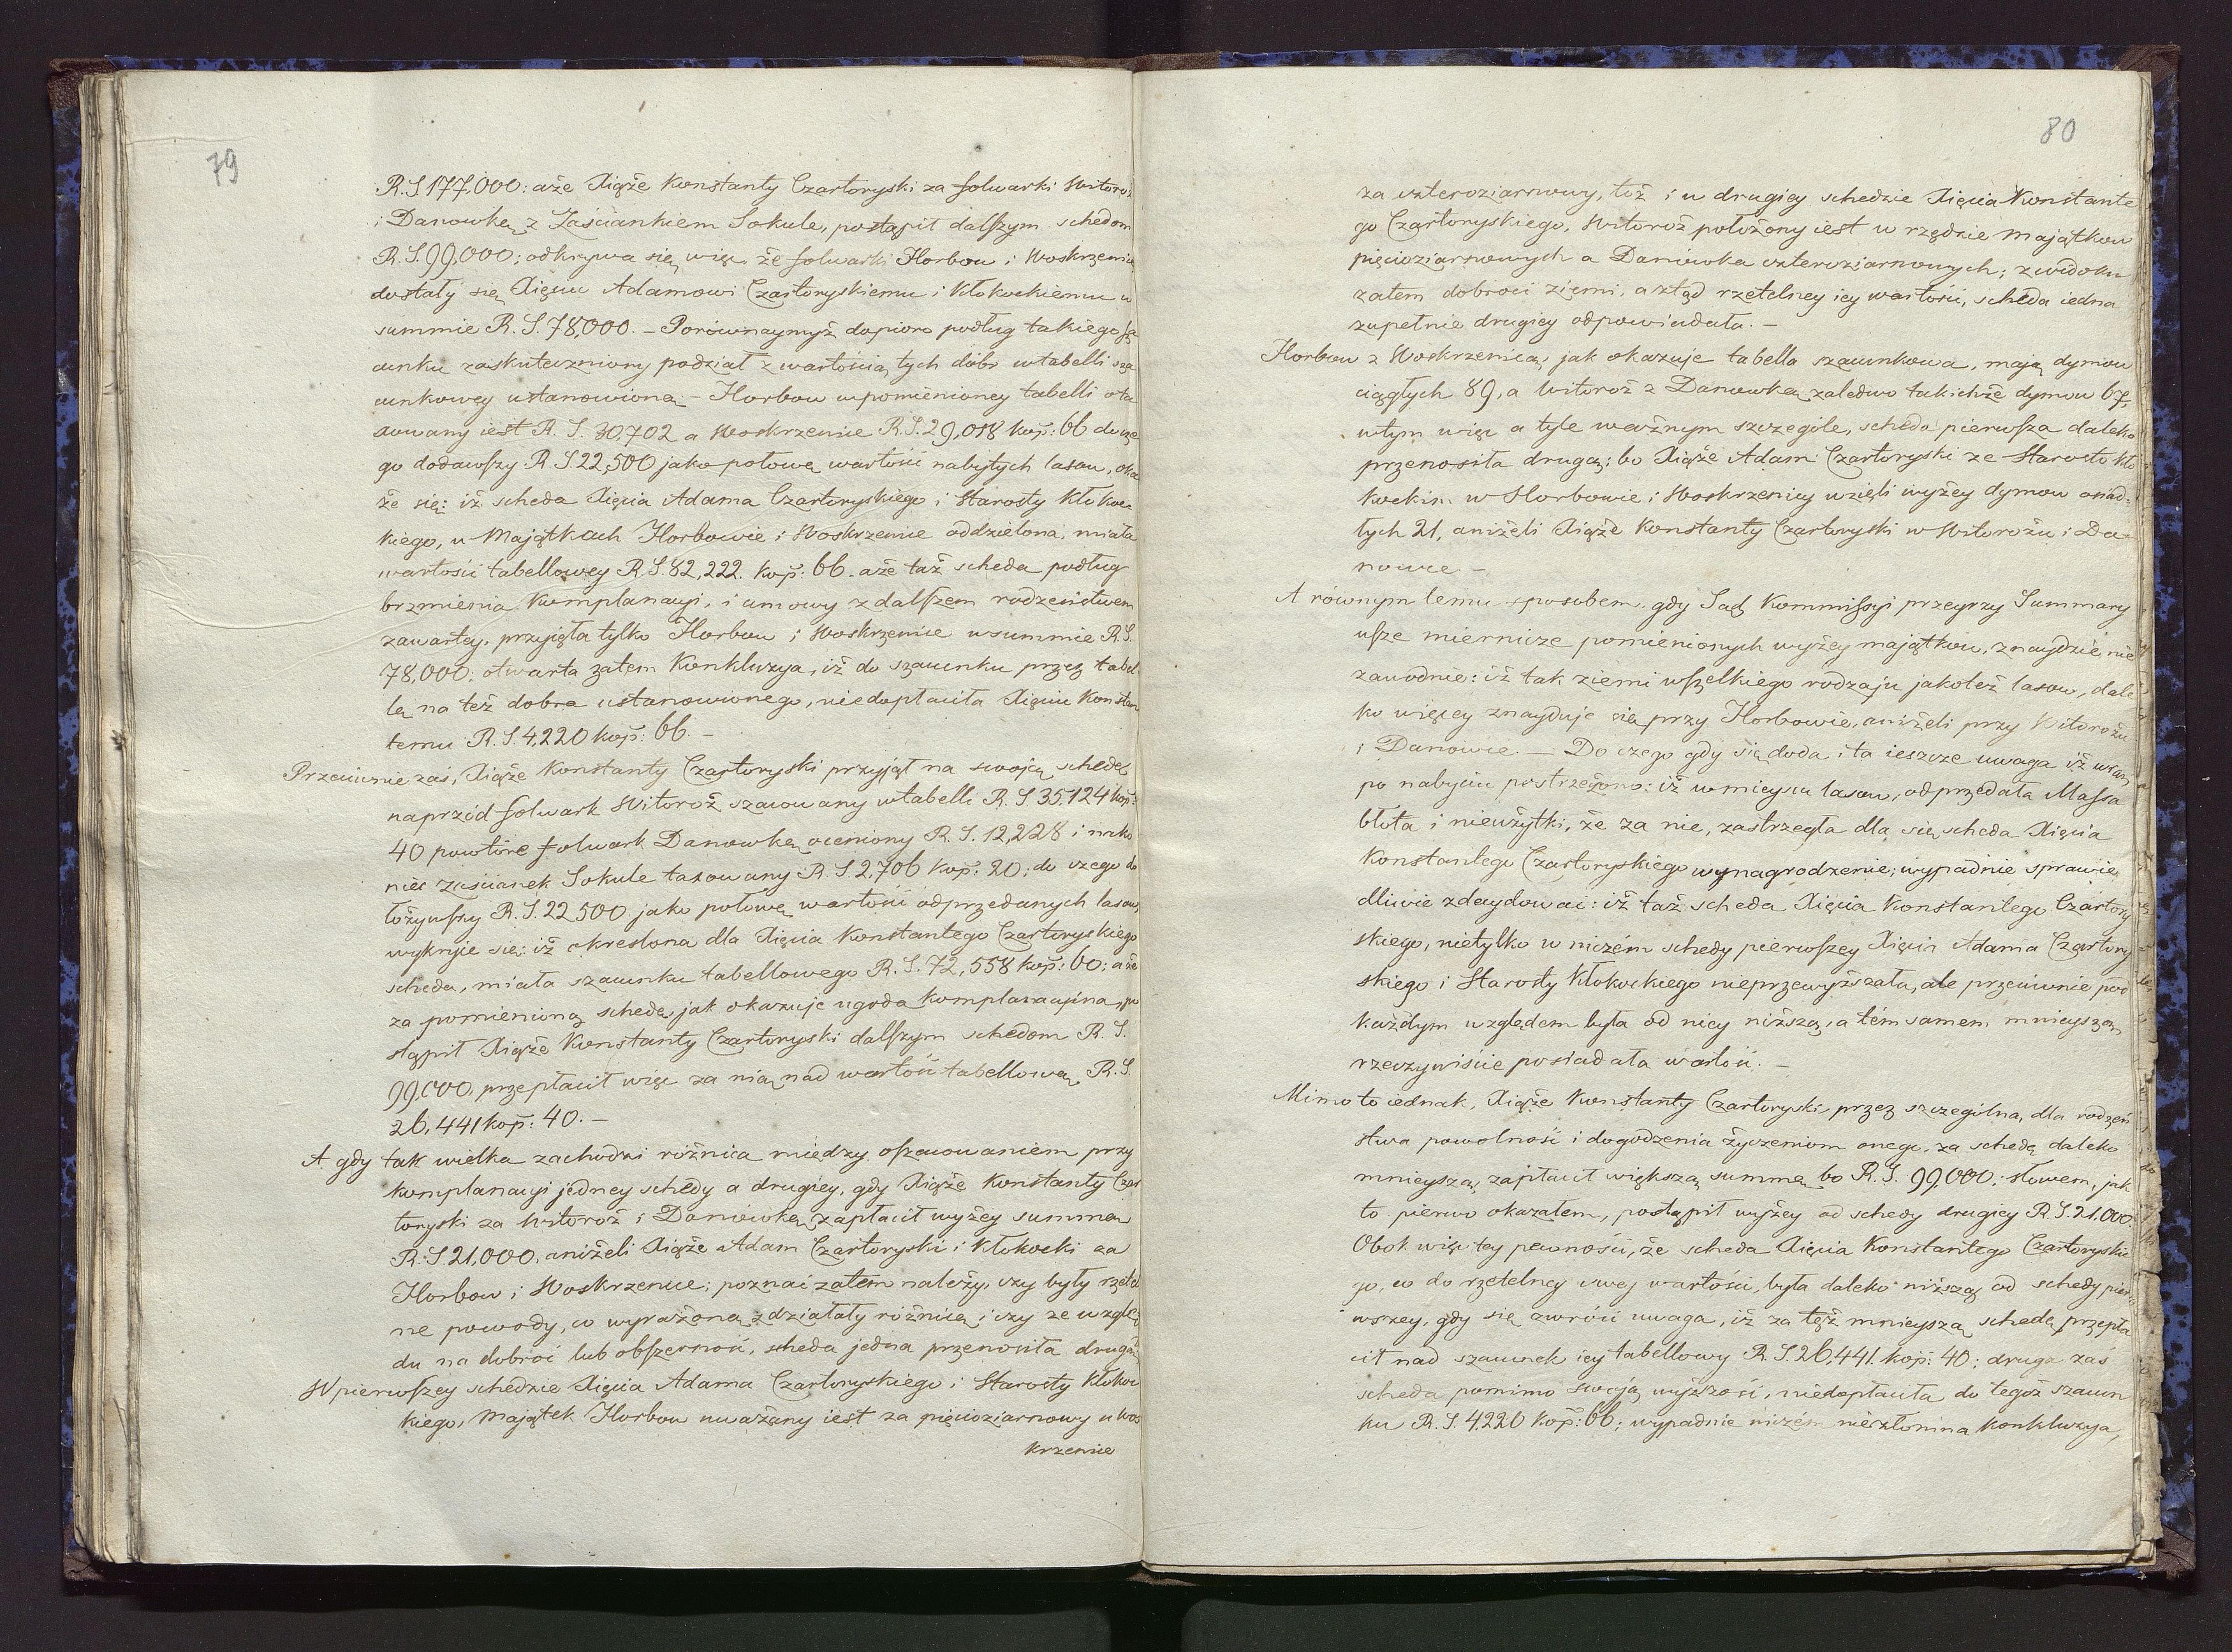 79
R. S. 177,000: aże Xiąże Konstanty Czartoryski za folwarki Witoroż
i Danowkę z Zaściankiem Sokule, postąpił dalszym schedom
R. S. 99,000; odkrywa się więc że folwarki Horbow i Woskrzenice
dostały się Xięciu Adamowi Czartoryskiemu i Kłokockiemu w
summie R. S. 78,000. – Porównaymyż dopioro podług takiego sza
cunku zaskuteczniony podział z wartością tych dóbr w tabelli sza
cunkowey ustanowioną – Horbow w pomienioney tabelli ota
xowany iest R. S. 30,702 a Woskrzenice R. S. 29,018 kop: 66 do cze
go dodawszy R. S. 22,500 jako połowę wartości nabytych lasow, oka
że się: iż scheda Xięcia Adama Czartoryskiego i Starosty Kłokoc-
kiego, w Majątkach Horbowie i Woskrzenice oddzielona, miała
wartości tabellowey R. S. 82,222. kop: 66. aże taż scheda podług
brzmienia Komplanacyi, i umowy z dalszem rodzeństwem
zawartey, przyięta tylko Horbow i Woskrzenice w summie R. S.
78,000: otwarta zatem Konkluzya, iż do szacunku przez tabel
lę na też dobra ustanowionego, niedopłaciła Xięciu Konstan
temu R. S. 4,220 kop: 66. –
Przeciwnie zaś, Xiąże Konstanty Czartoryski przyjął na swoją schedę
naprzód folwark Witoroż szacowany w tabelli R. S. 35,124 kop:
40 powtóre folwark Danowkę oceniony R. S. 12,228 i nako
niec zaścianek Sokule taxowany R. S. 2,706 kop: 20; do czego do
łożywszy R. S. 22,500 jako połowę wartości odprzedanych lasow,
wykryje się: iż okreslona dla Xięcia Konstantego Czartoryskiego
scheda, miała szacunku tabellowego R. S. 72,558 kop: 60; aże
za pomienioną schedę, jak okazuje ugoda komplanacyina, po
stąpił Xiąże Konstanty Czartoryski dalszym schedom R. S.
99,000, przepłacił więc za nią nad wartość tabellową R. S.
26,441 kop: 40. –
A gdy tak wielka zachodzi różnica między oszacowaniem przy
komplanacyi jedney schedy a drugiey, gdy Xiąże Konstanty Czar
toryski za Witoroż i Danówkę zapłacił wyżey summę
R. S. 21,000, aniżeli Xiąże Adam Czartoryski i Kłokocki za
Horbow i Woskrzenice; poznać zatem należy, czy były rzetel
ne powody, co wyrażoną zdziałały różnicę; i czy ze wzglę
du na dobroć lub obszerność, scheda jedna przenosiła drugą
W pierwszey schedzie Xięcia Adama Czartoryskiego i Starosty Kłokoc
kiego, majątek Horbow uważany iest za pięcioziarnowy a Wos
krzenice
80
za czteroziarnowy, toż i w drugiey schedzie Xięcia Konstante
go Czartoryskiego, Witoroż położony iest w rzędzie majątkow
pięcioziarnowych a Danówka czteroziarnowych; z widoku
zatem dobroci ziemi, a ztąd rzetelney iey wartości, scheda iedna
zupełnie drugiey odpowiadała. –
Horbow z Woskrzenicą, jak okazuje tabella szacunkowa, mają dymow
ciągłych 89, a Witoroż z Danowką zaledwo takichże dymow 67,
w tym więc a tyle ważnym szczególe, scheda pierwsza daleko
przenosiła drugą; bo Xiąże Adam Czartoryski ze Starostą Kło
kockim w Horbowie i Woskrzenicy wzięli wyżey dymow osiad-
łych 21, aniżeli Xiąże Konstanty Czartoryski w Witorożu i Da-
nowce –
A równym temu sposobem, gdy Sąd Kommissyi przeyrzy Summary
usze miernicze pomienionych wyżey majątkow, znaydzie nie
zawodnie: iż tak ziemi wszelkiego rodzaju jakoteż lasow, dale
ko więcey znayduje się przy Horbowie, aniżeli przy Witorożu
i Danowce. – Do czego gdy się doda i ta ieszcze uwaga iż wraz
po nabyciu postrzeżono: iż w mieyscu lasow, odprzedała Massa
błota i nieużytki, że za nie, zastrzegła dla się scheda Xięcia
Konstantego Czartoryskiego wynagrodzenie; wypadnie sprawie
dliwie zdecydować: iż taż scheda Xięcia Konstantego Czartory
skiego, nietylko w niczém schedy pierwszey Xięcia Adama Czartory
skiego i Starosty Kłokockiego nieprzewyższała, ale przeciwnie pod
każdym względem była od niey niższą, a tém samem mnieyszą
rzeczywiście posiadała wartość. –
Mimo to iednak, Xiąże Konstanty Czartoryski przez szczególną, dla rodzeń
stwa powolność i dogodzenia życzeniom onego, za schedę daleko
mnieyszą, zapłacił większą summę bo R. S. 99,000; słowem, jak
to pierwo okazałem, postąpił wyżey od schedy drugiey R. S. 21,000
Obok więc tey pewności, że scheda Xięcia Konstantego Czartoryskie
go, co do rzetelney swey wartości, była daleko niższą od schedy pier
wszey, gdy się zwróci uwaga, iż za tęż mnieyszą schedę przepła
cił nad szacunek iey tabellowy R. S. 26,441. kop: 40; druga zaś
scheda pomimo swoją wyższość, niedopłaciła do tegoż szacun
ku R. S. 4220 kop: 66; wypadnie niczém niezłomna konkluzya,